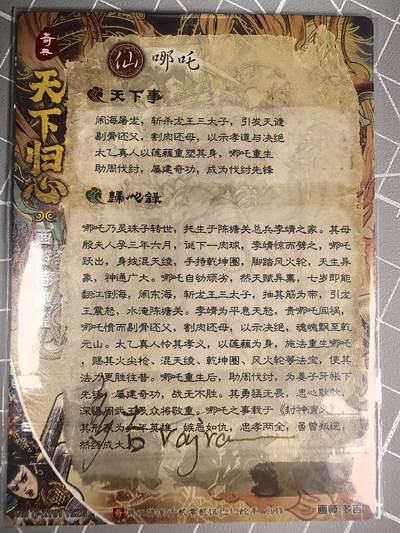 奇典
天下归心
仙 哪吒
天下事
闹海屠龙，斩杀龙王三太子，引发天谴
剔骨还父，割肉还母，以示孝道与决绝
太乙真人以莲藕重塑其身，哪吒重生
助周伐纣，屡建奇功，成为伐纣先锋
归心录
哪吒乃灵珠子转世，托生于陈塘关总兵李靖之家。其母
殷夫人孕三年六月，诞下一肉球，李靖惊而劈之，哪吒
跃出，身披混天绫，手持乾坤圈，脚踏风火轮，天生异
象，神通广大。哪吒自幼顽劣，然天赋异禀，七岁即能
翻江倒海，闹东海，斩龙王三太子，抽其筋为带，引龙
王震怒，水淹陈塘关。李靖为平息天怒，责哪吒闯祸，
哪吒愤而剔骨还父，割肉还母，以示决绝，魂魄飘至乾
元山。太乙真人怜其孝义，以莲藕为身，施法重生哪吒
，赐其火尖枪、混天绫、乾坤圈、风火轮等法宝，使其
法力更胜往昔。哪吒重生后，助周伐纣，为姜子牙帐下
先锋，屡建奇功，战无不胜。其勇猛无畏，忠心耿耿，
深得周武王及众将敬重。哪吒之事载于《封神演义》
其形象为少年英雄，嫉恶如仇，忠孝两全，虽曾叛逆，
然终成大
画师:多吉